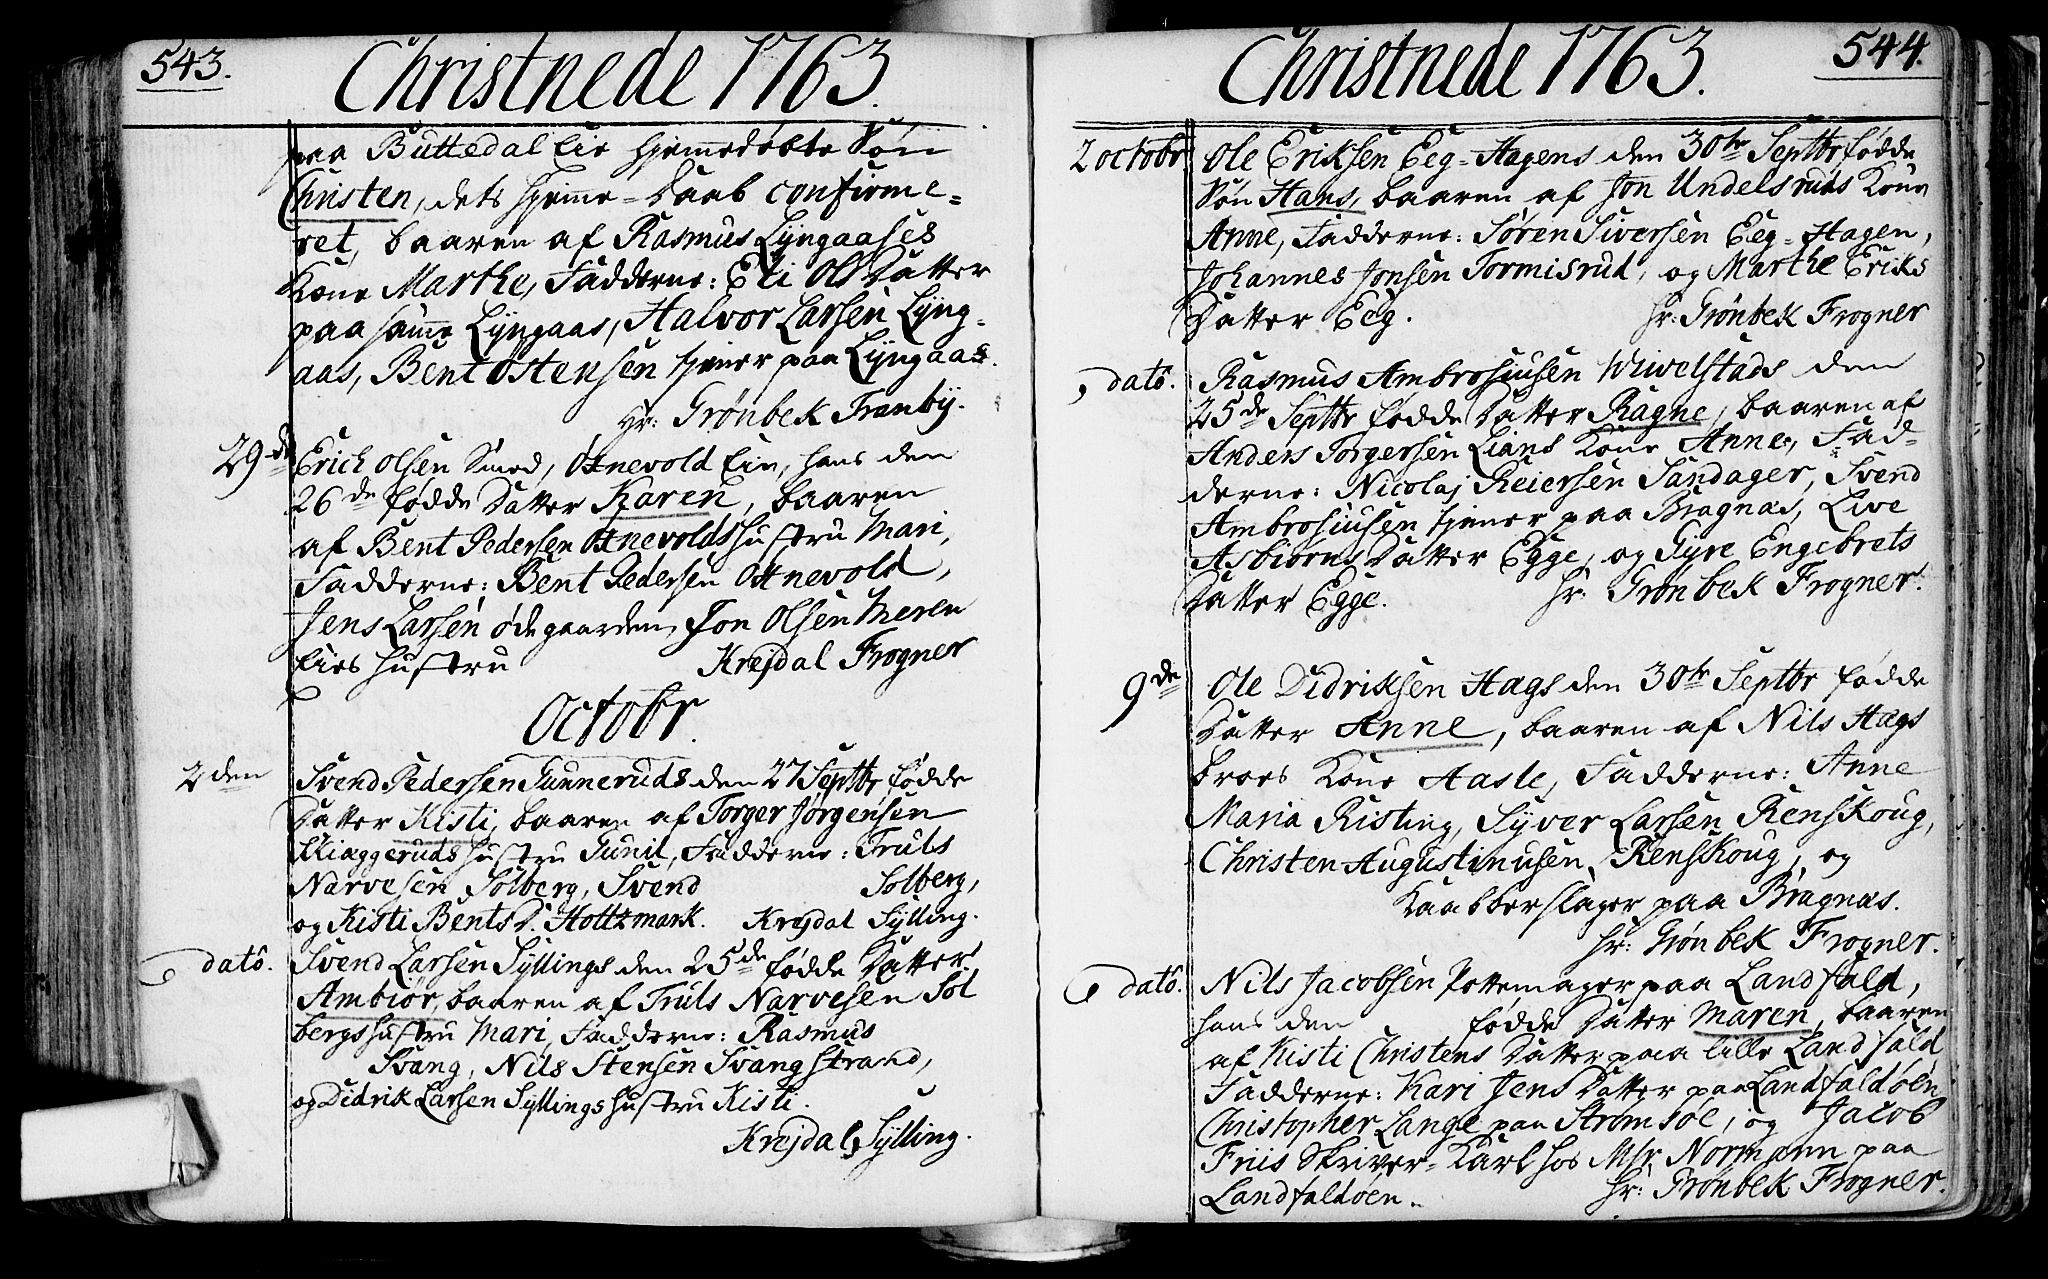 543.
Christnede 1763.
paa Buttedal Eie hjemmedøbte Søn
Christen, dets hjemme-Daab confirme-
ret, baaren af Rasmus Lyngaases
Kone Marthe, Fadderne: Eli Ols Datter
paa samme Lyngaas, Halvor Larsen Lyng-
aas, Bent Østensen tjener paa Lyngaas.
Hr: Grønbek Tranby.
29de Erich Olsen Smed, Østnevold Eie, hans den
26de fødde Datter Karen, baaren
af Bent Pedersen Østnevolds hustru Mari,
Fadderne: Bent Pedersen Østnevold,
Jens Larsen Ødegaarden, Jon Olsen Meren
Eies hustru Krejdal Frogner
Octobr.
2den Svend Pedersen Gunneruds den 27 Septbr fødde
Datter Kisti, baaren af Torger Jørgensen
Skiaggeruds hustru Gunil, Fadderne: Truls
Narvesen Solberg, Svend Solberg,
og Kisti Bents D. Holtzmark. Krejdal Sylling.
dato. Svend Larsen Syllings den 25de fødde Datter
Ambiør, baaren af Truls Narvesen Sol
bergs hustru Mari, Fadderne: Rasmus
Svang, Nils Stensen Svangstrand,
og Didrik Larsen Syllings hustru Kisti.
Krejdal Sylling.
544.
Christnede 1763.
2 octobr Ole Eriksen Eeg-Hagens den 30te Septbr fødde
Søn Hans, baaren af Jon Undelsruds Kone
Anne, Fadderne: Søren Siversen Eeg-Hagen,
Johannes Jonsen Tormisrud, og Marthe Eriks
Datter Eeg. Hr: Grønbek Frogner
dato. Rasmus Ambrosiusen Wivelstads den
25de Septbr fødde Datter Ragne, baaren af
Anders Torgersen Lians Kone Anne, Fad-
derne: Nicolaj Reiersen Sandager, Svend
Ambrosiusen tjener paa Bragnas, Live
Asbiørns Datter Egge, og Gyre Engebrets
Datter Egge. Hr: Grønbek Frogner.
9de Ole Didriksen Hags den 30te Septbr fødde
Datter Anne, baaren af Nils Hags
broes Kone Aasle, Fadderne: Anne
Maria Risting, Syver Larsen Renskoug,
Christen Augustinusen Renskoug, og
Kaabberslager paa Bragnas.
Hr: Grønbek Frogner.
dato. Nils Jacobsen Pottemager paa Landfald,
hans den fødde Datter Maren, baaren
af Kisti Christens Datter paa lille Landfald
Fadderne: Kari Jens Datter paa Landfaldøen
Christopher Lange paa Strømsøe, og Jacob
Friis Skriver-Karl hos Msr. Normann paa
Landfaldøen. Hr: Grønbek Frogner.